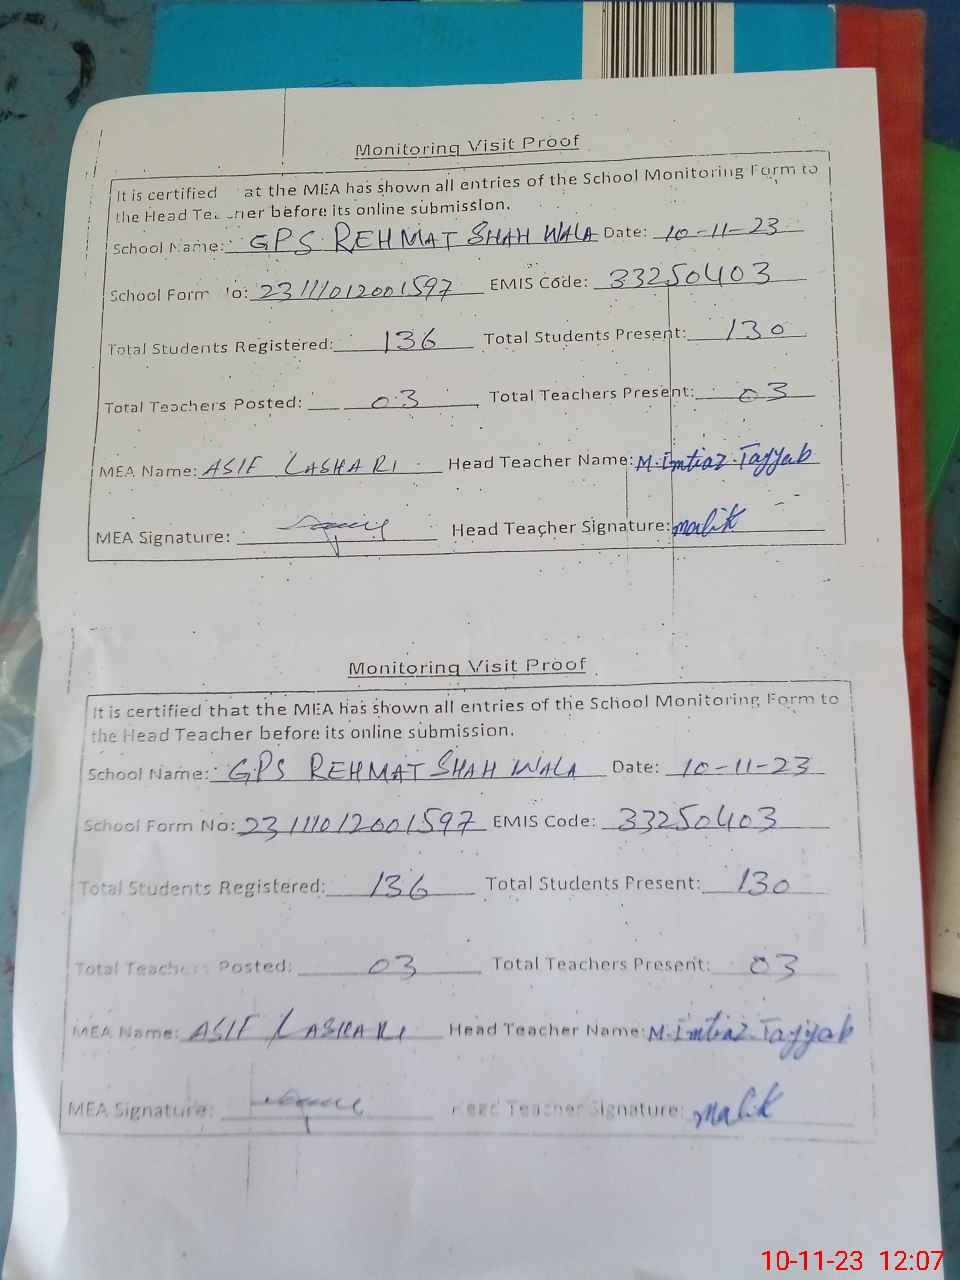 Monitoring Visit Proof
It is certified at the MEA has shown all entries of the School Monitoring Form to
the Head Teacher before its online submission.
School Name: GPS REHMAT SHAH WALA Date: 10-11-23
School Form No: 23111012001597 EMIS Code: 33250403
Total Students Registered: 136 Total Students Present: 130
Total Teachers Posted: 03 Total Teachers Present: 03
MEA Name: ASIF LASHARI Head Teacher Name: M.Imtiaz.Tayyab
MEA Signature: Head Teacher Signature: malik
Monitoring Visit Proof
It is certified that the MEA has shown all entries of the School Monitoring Form to
the Head Teacher before its online submission.
School Name: GPS REHMAT SHAH WALA Date: 10-11-23
School Form No: 23111012001597 EMIS Code: 33250403
Total Students Registered: 136 Total Students Present: 130
Total Teachers Posted: 03 Total Teachers Present: 03
MEA Name: ASIF LASHARI Head Teacher Name: M.Imtiaz.Tayyab
MEA Signature: Head Teacher Signature: malik
10-11-23 12:07